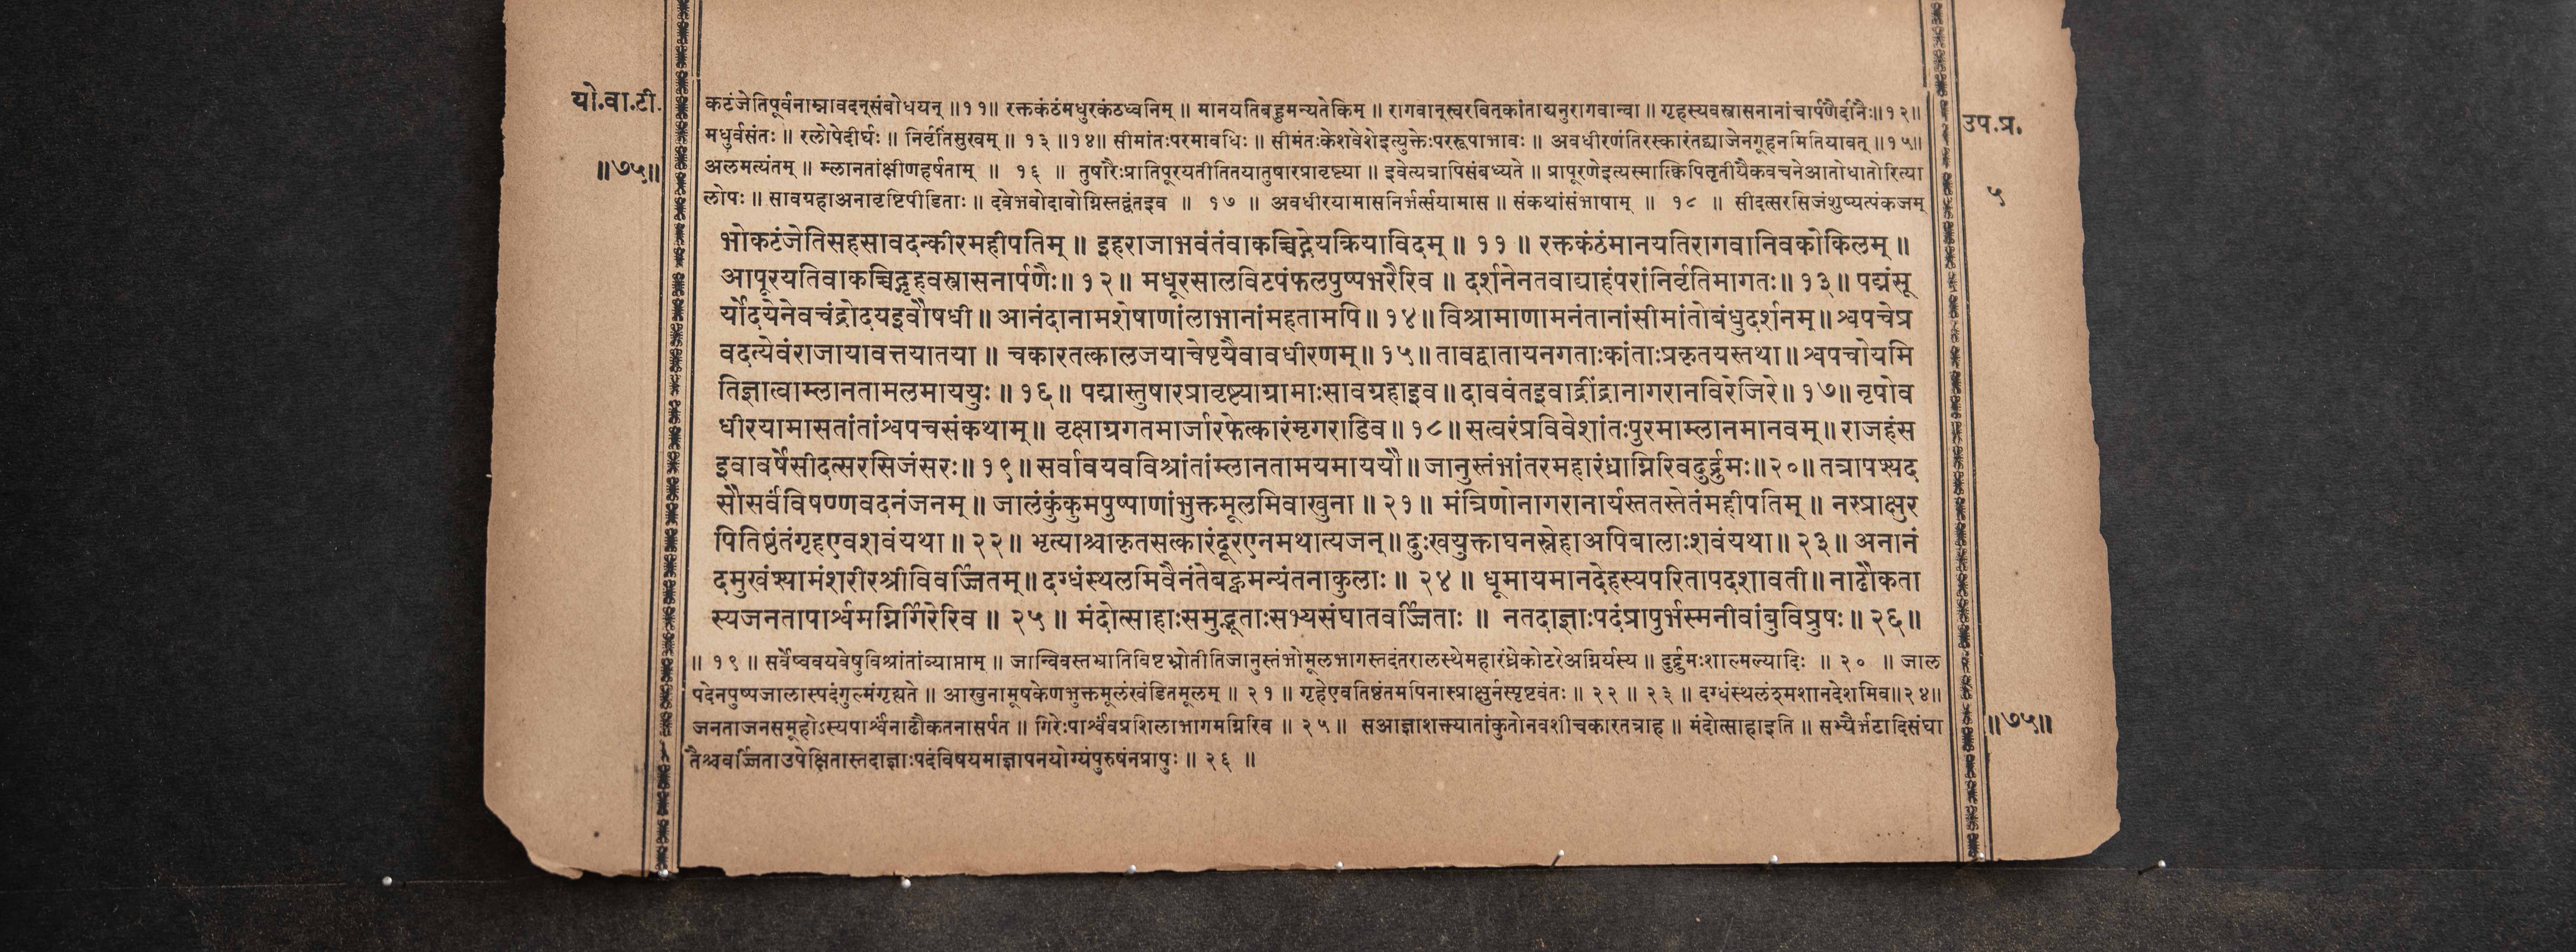 यो.वा.टी.
॥७५॥
उप.प्र.
५
कटंजेतिपूर्वनाम्नावदन्संबोधयन् ॥११॥ रक्तकंठंमधुरकंठध्वनिम् ॥ मानयतिबहुमन्यतेकिम् ॥ रागवान्स्वरवित्कांताद्यनुरागवान्वा ॥ गृहस्यवस्त्रासनानांचार्पणैर्दानैः॥१२॥
मधुर्वसंतः ॥ रलोपेदीर्घः ॥ निर्वृतिंसुखम् ॥ १३ ॥१४॥ सीमांतःपरमावधिः ॥ सीमंतःकेशवेशेइत्युक्तेःपररूपाभावः ॥ अवधीरणंतिरस्कारंतद्याजेनगूहनमितियावत् ॥१५॥
अलमत्यंतम् ॥ म्लानतांक्षीणहर्षताम् ॥ १६ ॥ तुषारैःप्रातिपूरयतीतितयातुषारप्रावृष्ट्या ॥ इवेत्यत्रापिसंबध्यते ॥ प्रापूरणेइत्यस्मात्क्विपितृतीयैकवचनेआतोधातोरित्या
लोपः ॥ सावग्रहाअनावृष्टिपीडिताः ॥ दवेभवोदावोग्निस्तद्वंतइव ॥ १७ ॥ अवधीरयामासनिर्भर्त्सयामास ॥ संकथांसंभाषाम् ॥ १८ ॥ सीदत्सरसिजंशुष्यत्पंकजम्
भोकटंजेतिसहसावदन्कीरमहीपतिम् ॥ इहराजाभवंतंवाकच्चिद्गेयक्रियाविदम् ॥ ११ ॥ रक्तकंठंमानयतिरागवानिवकोकिलम् ॥
आपूरयतिवाकच्चिद्गृहवस्त्रासनार्पणैः॥ १२॥ मधूरसालविटपंफलपुष्पभरैरिव ॥ दर्शनेनतवाद्याहंपरांनिर्वृतिमागतः॥ १३॥ पद्मंसू
र्योदयेनेवचंद्रोदयइवौषधी ॥ आनंदानामशेषाणांलाभानांमहतामपि॥ १४॥ विश्रामाणामनंतानांसीमांतोबंधुदर्शनम्॥ श्वपचेप्र
वदत्येवंराजायावत्तयातया ॥ चकारतत्कालजयाचेष्टयैवावधीरणम्॥ १५॥ तावद्वातायनगताःकांताःप्रकृतयस्तथा॥ श्वपचोयमि
तिज्ञात्वाम्लानतामलमाययुः॥ १६॥ पद्मास्तुषारप्रावृष्ट्याग्रामाःसावग्रहाइव॥ दाववंतइवाद्रींद्रानागरानविरेजिरे॥ १७॥ नृपोव
धीरयामासतांतांश्वपचसंकथाम्॥ वृक्षाग्रगतमार्जारफेत्कारंमृगराडिव॥ १८॥ सत्वरंप्रविवेशांतःपुरमाम्लानमानवम्॥ राजहंस
इवावर्षेसीदत्सरसिजंसरः॥ १९॥ सर्वावयवविश्रांतांम्लानतामयमाययौ॥ जानुस्तंभांतरमहारंध्राग्निरिवदुर्द्रुमः॥२०॥ तत्रापश्यद
सौसर्वंविषण्णवदनंजनम्॥ जालंकुंकुमपुष्पाणांभुक्तमूलमिवाखुना॥ २१॥ मंत्रिणोनागरानार्यस्ततस्तेतंमहीपतिम्॥ नस्प्राक्षुर
पितिष्ठंतंगृहएवशवंयथा॥ २२॥ भृत्याश्चाकृतसत्कारंदूरएनमथात्यजन्॥ दुःखयुक्ताघनस्नेहाअपिबालाःशवंयथा॥ २३॥ अनानं
दमुखंश्यामंशरीरश्रीविवर्ज्जितम्॥ दग्धंस्थलमिवैनंतेबह्वमन्यंतनाकुलाः॥ २४॥ धूमायमानदेहस्यपरितापदशावती॥ नाढौकता
स्यजनतापार्श्वमग्निर्गिरेरिव॥ २५॥ मंदोत्साहाःसमुद्भूताःसभ्यसंघातवर्ज्जिताः॥ नतदाज्ञाःपदंप्रापुर्भस्मनीवांबुविप्रुषः॥ २६॥
॥ १९ ॥ सर्वेष्ववयवेषुविश्रांतांव्याप्ताम् ॥ जान्विवस्तभ्नातिविष्टभ्नोतीतिजानुस्तंभोमूलभागस्तदंतरालस्थेमहारंध्रेकोटरेअग्निर्यस्य ॥ दुर्द्रुमःशाल्मल्यादिः ॥ २० ॥ जाल
पदेनपुष्पजालास्पदंगुल्मंगृह्यते ॥ आखुनामूषकेणभुक्तमूलंखंडितमूलम् ॥ २१ ॥ गृहेएवतिष्ठंतमपिनास्प्राक्षुर्नस्पृष्टवंतः ॥ २२ ॥ २३ ॥ दग्धंस्थलंश्मशानदेशमिव॥२४॥
जनताजनसमूहोऽस्यपार्श्वंनाढौकतनासर्पत ॥ गिरेःपार्श्वंवप्रशिलाभागमग्निरिव ॥ २५ ॥ सआज्ञाशक्त्यातांकुतोनवशीचकारतत्राह ॥ मंदोत्साहाइति ॥ सभ्यैर्भटादिसंघा
तैश्चवर्ज्जिताउपेक्षितास्तदाज्ञाःपदंविषयमाज्ञापनयोग्यंपुरुषंनप्रापुः ॥ २६ ॥
॥७५॥